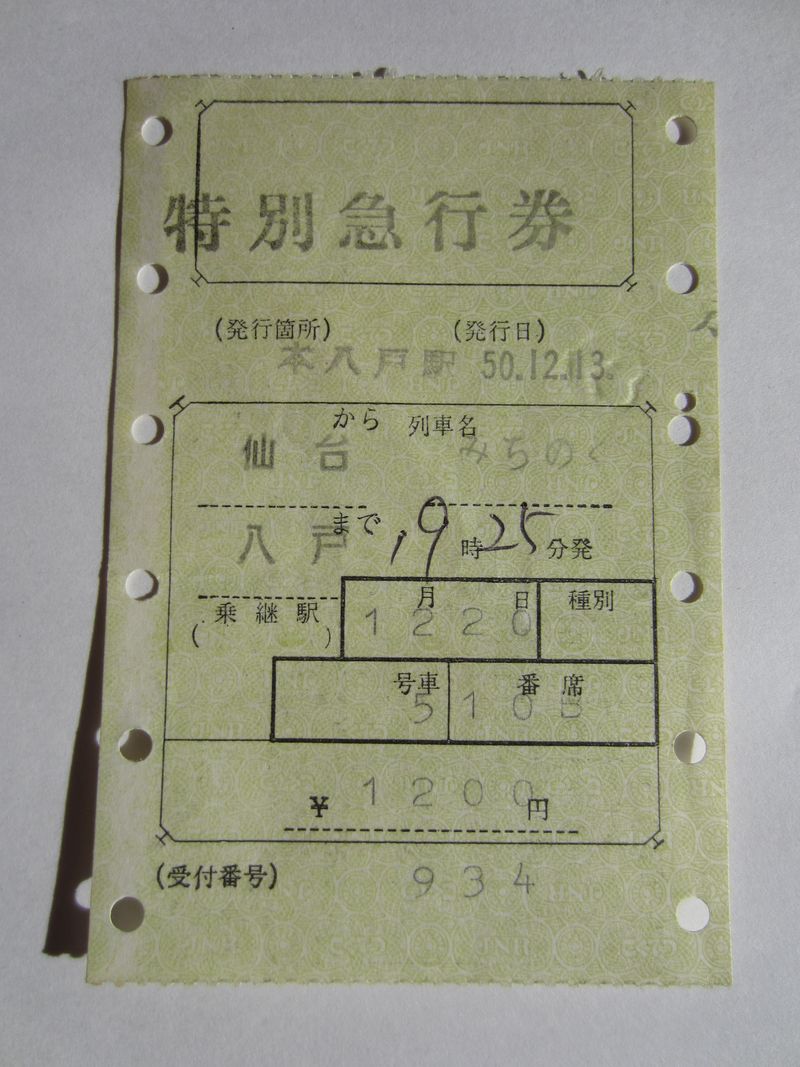 特別急行券
(発行箇所) (発行日)
本八戸駅 50.12.13.
から 列車名
仙台 みちのく
まで
八戸 19時25分発
月 日 種別
(乗継駅) 12 20
号車 番 席
5 10 B
¥1200円
(受付番号) 934